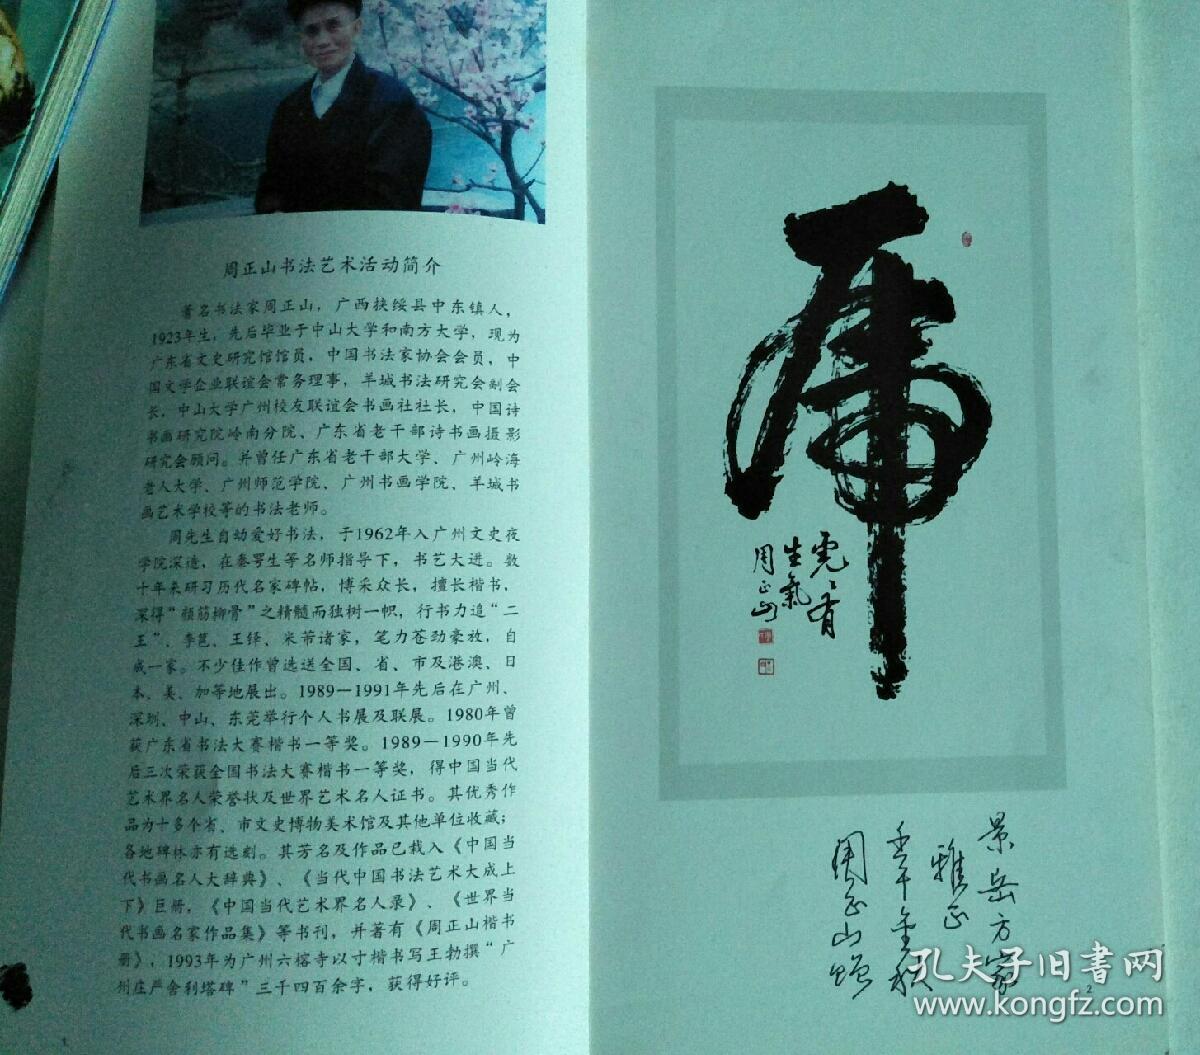 周正山书法艺术活动简介
著名书法家周正山，广西扶绥县中东镇人，
1923年生，先后毕业于中山大学和南方大学，现为
广东省文史研究馆馆员，中国书法家协会会员，中
国文学企业联谊会常务理事，羊城书法研究会副会
长，中山大学广州校友联谊会书画社社长，中国诗
书画研究院岭南分院、广东省老干部诗书画摄影
研究会顾问。并曾任广东省老干部大学、广州岭海
老人大学、广州师范学院、广州书画学院、羊城书
画艺术学校等的书法老师。
周先生自幼爱好书法，于1962年入广州文史夜
学院深造，在秦咢生等名师指导下，书艺大进。数
十年来研习历代名家碑帖，博采众长，擅长楷书，
深得“颜筋柳骨”之精髓而独树一帜，行书力追“二
王”、李邕、王铎、米芾诸家，笔力苍劲豪放，自
成一家。不少佳作曾选送全国、省、市及港澳、日
本、美、加等地展出。1989—1991年先后在广州、
深圳、中山、东莞举行个人书展及联展。1980年曾
获广东省书法大赛楷书一等奖。1989—1990年先
后三次荣获全国书法大赛楷书一等奖，得中国当代
艺术界名人荣誉状及世界艺术名人证书。其优秀作
品为十多个省、市文史博物美术馆及其他单位收藏；
各地碑林亦有选刻。其芳名及作品已载入《中国当
代书画名人大辞典》、《当代中国书法艺术大成上
下》巨册，《中国当代艺术界名人录》、《世界当
代书画名家作品集》等书刊，并著有《周正山楷书
册》，1993年为广州六榕寺以寸楷书写王勃撰“广
州庄严舍利塔碑”三千四百余字，获得好评。
1
虎
虎虎有
生氣
周正山
景岳方家
雅正
壬午金秋
周正山贈
2
孔夫子旧书网
www.kongfz.com